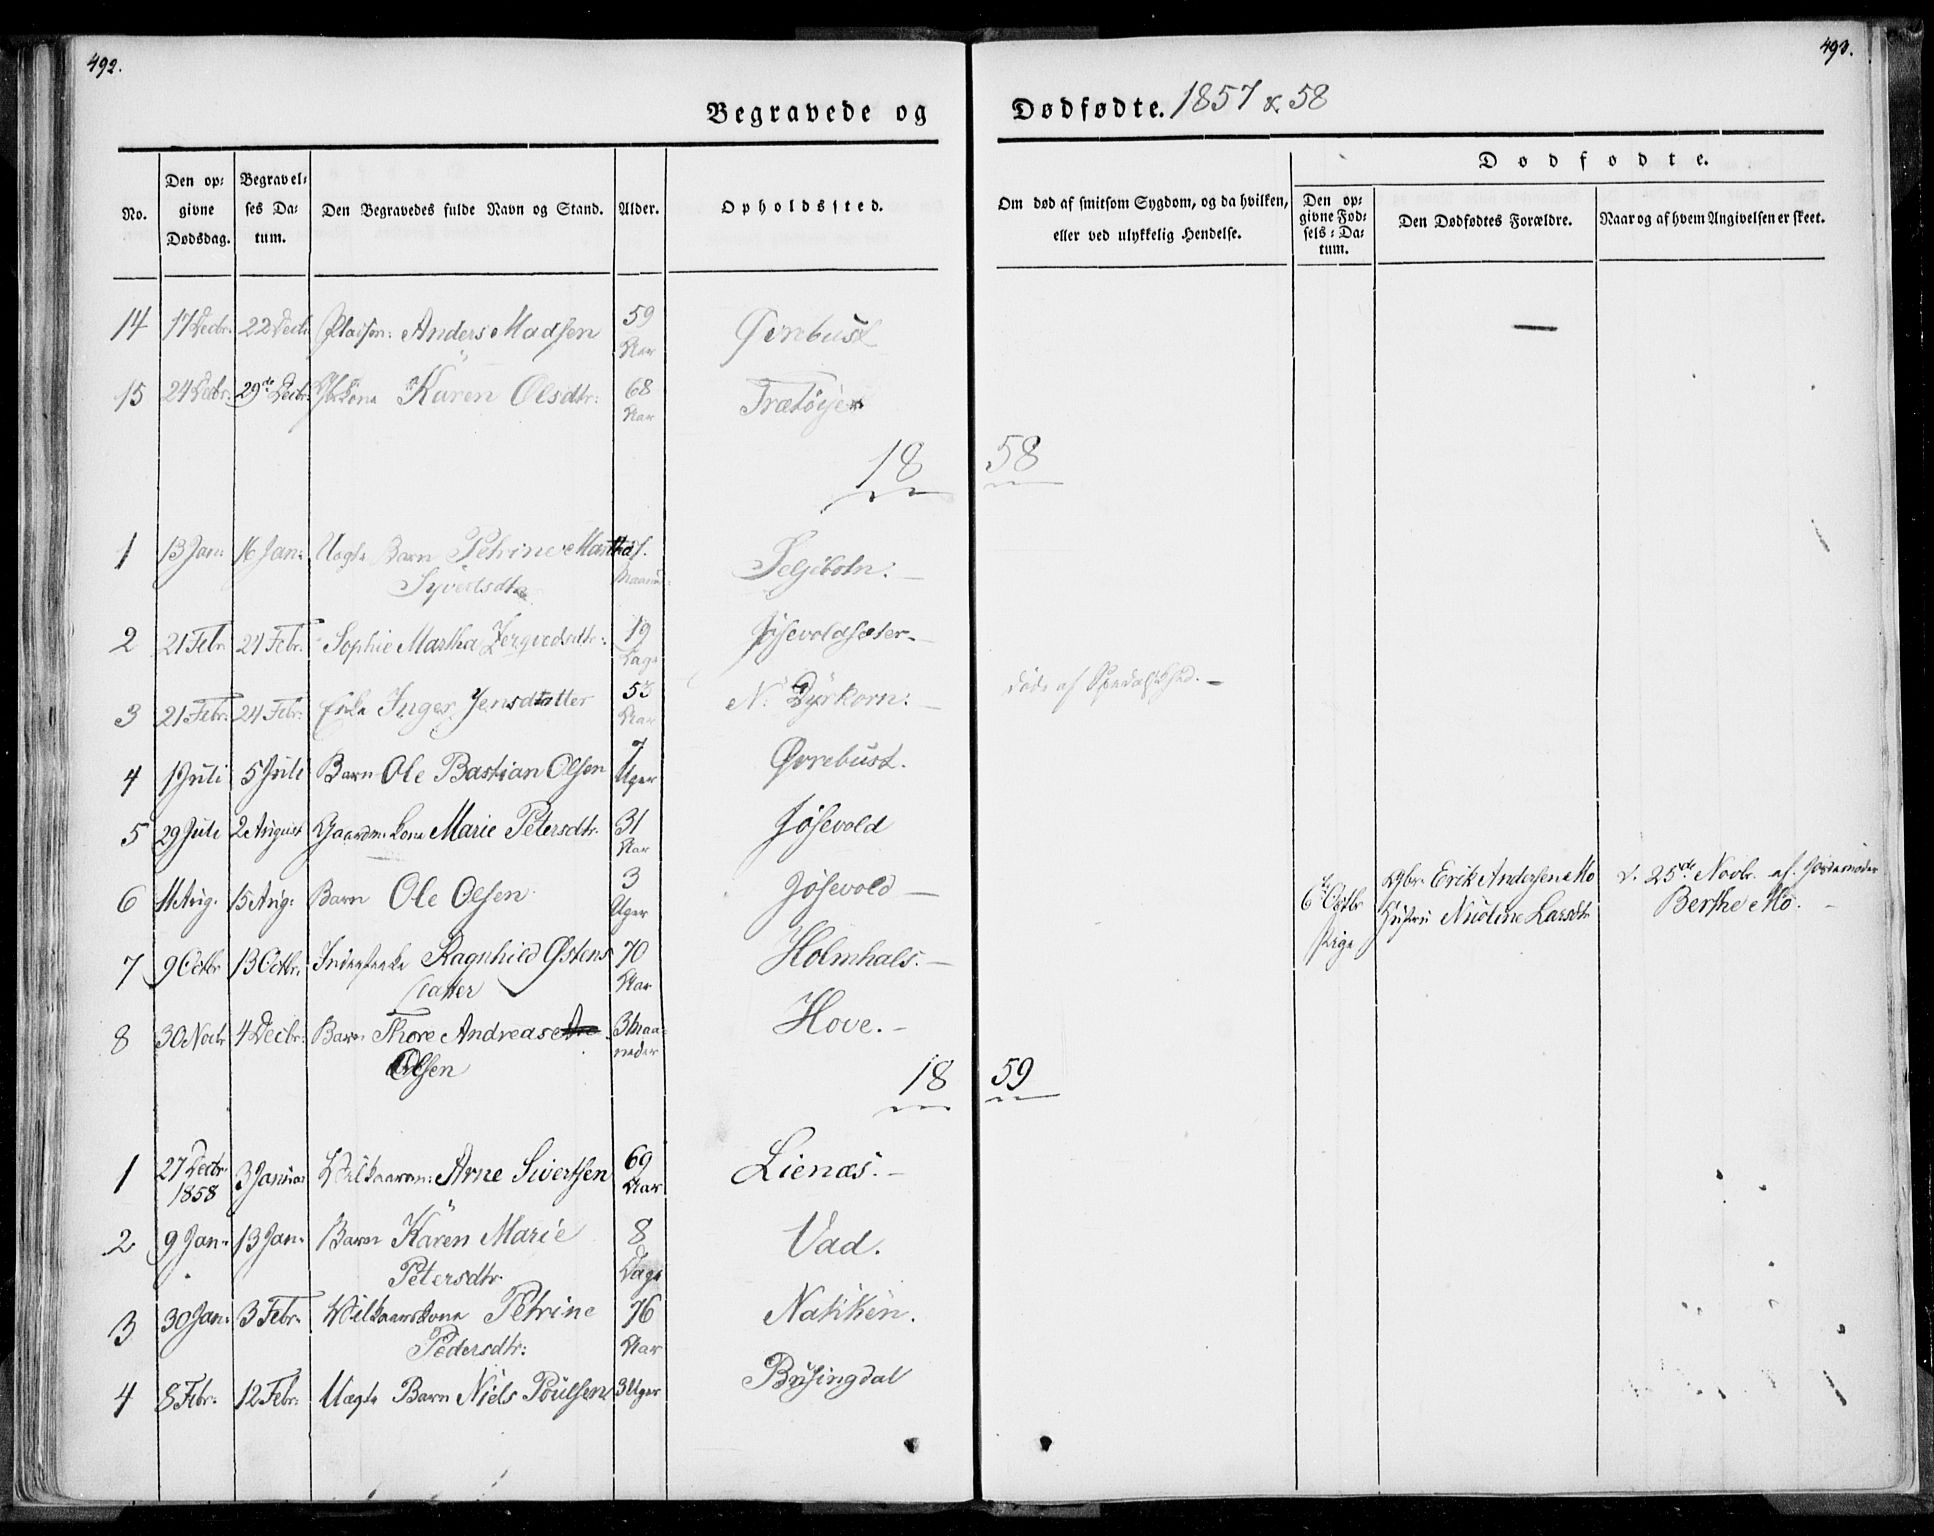 492.
493.
Begravede og Dødfødte. 1857 & 58
No.
Den op-
givne
Dødsdag.
Begravel-
ses Da-
tum.
Den Begravedes fulde Navn og Stand.
Alder.
Opholdssted.
Om død af smitsom Sygdom, og da hvilken,
eller ved ulykkelig Hendelse.
Dødfødte.
Den op-
givne Fød-
sels-Da-
tum.
Den Dødfødtes Forældre.
Naar og af hvem Angivelsen er skeet.
14 17 Decbr. 22 Decbr. Anders Madsen 59 Aar —
15 24 Decbr. 29de Decbr. Kone Karen Olsdtr: 68 Aar
1858
1 13 Jan: 16 Jan: Uægte Barn Petrine Martha
Syvertsdtr
2 21 Febr 24 Febr. Sophie Martha 19 Dage
3 21 Febr. 24 Febr. Enke Inger Jensdatter Aar N. Dyrkorn: død af Spedalskhed. —
4 1 Juli 5 Juli Barn Ole Bastian Olsen 7 Uger Øvrebust.
5 29 Juli 2 August Gaardm. Kone Marie Petersdtr. 31 Aar Jøsevold
6 11 Aug. 15 Aug: Barn Ole Olsen 3 Uger Jøsevold —
6te Octbr Pige
Erik Andersen Mo
Hustru Nicoline Larsdtr
d. 25de Novbr. af Jordemoder
Berthe Mo. —
7 9 Octbr 13 Octbr. Ragnhild Østens 70 Aar Holmhals. —
datter
8 30 Novbr 4 Decbr: Barn Thore Andreas 3 Maa-
neder Hove. —
Olsen
1859
1 27 Decbr 1858 3 Januar Vilkaarm: Arne Sivertsen 69 Aar Lienæs. —
2 9 Jan: 13 Jan: Barn Karen Marie 8 Dage Vad.
Petersdtr.
3 30 Jan: 3 Febr. Vilkaarskone Petrine 76 Aar Nakken.
Pedersdtr:
4 8 Febr. 12 Febr. Uægte Barn Niels Poulsen 3 Uger Brusingdal